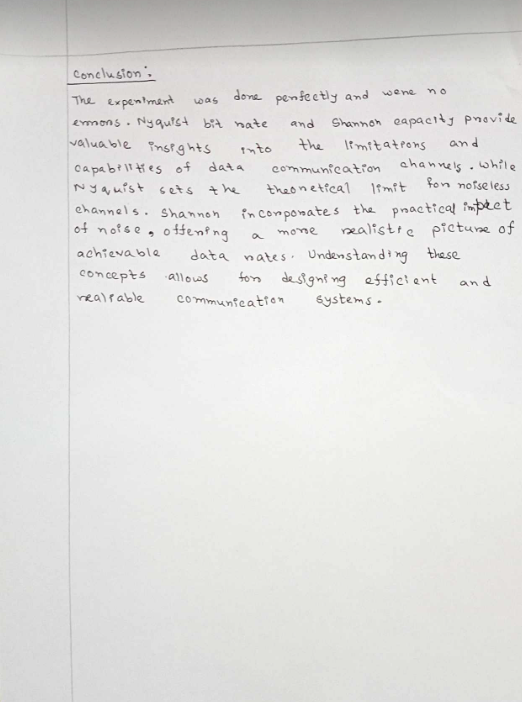 Conclusion:
The experiment was done perfectly and were no
errors. Nyquist bit rate and Shannon capacity provide
valuable insights into the limitations and
capabilities of data communication channels. While
Nyquist sets the theoretical limit for noiseless
channels. Shannon incorporates the practical impact
of noise, offering a more realistic picture of
achievable data rates. Understanding these
concepts allows for designing efficient and
realiable communication systems.